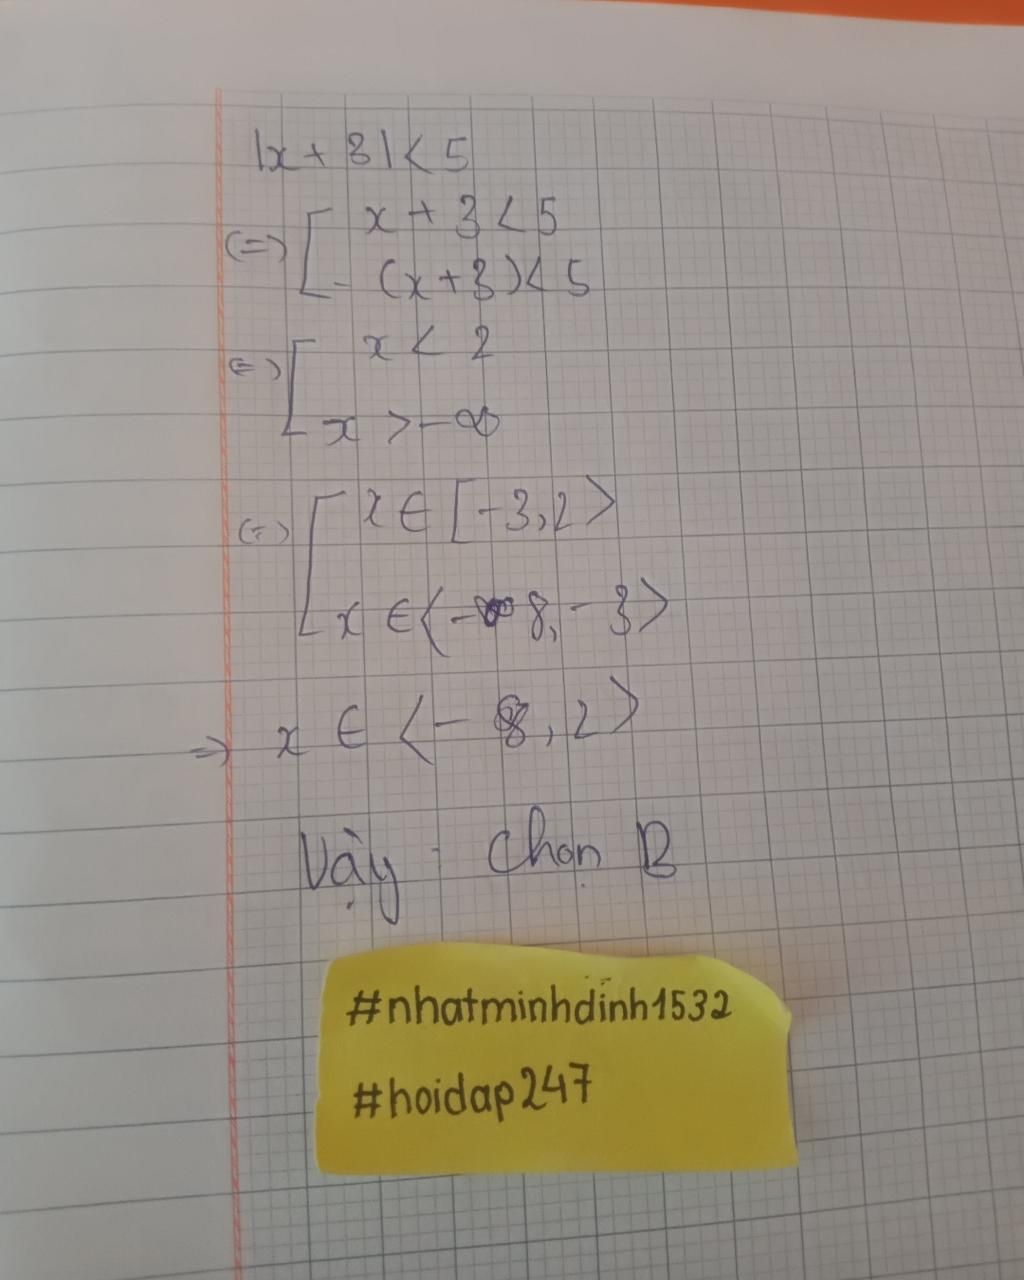 |x + 3| < 5
(=) [ x + 3 < 5
- (x + 3) < 5
(=) [ x < 2
x > -∞
(=) [ x ∈ [-3, 2>
x ∈ <- 8, - 3>
=> x ∈ <- 8, 2>
Vậy : Chọn B
#nhatminhdinh1532
#hoidap247